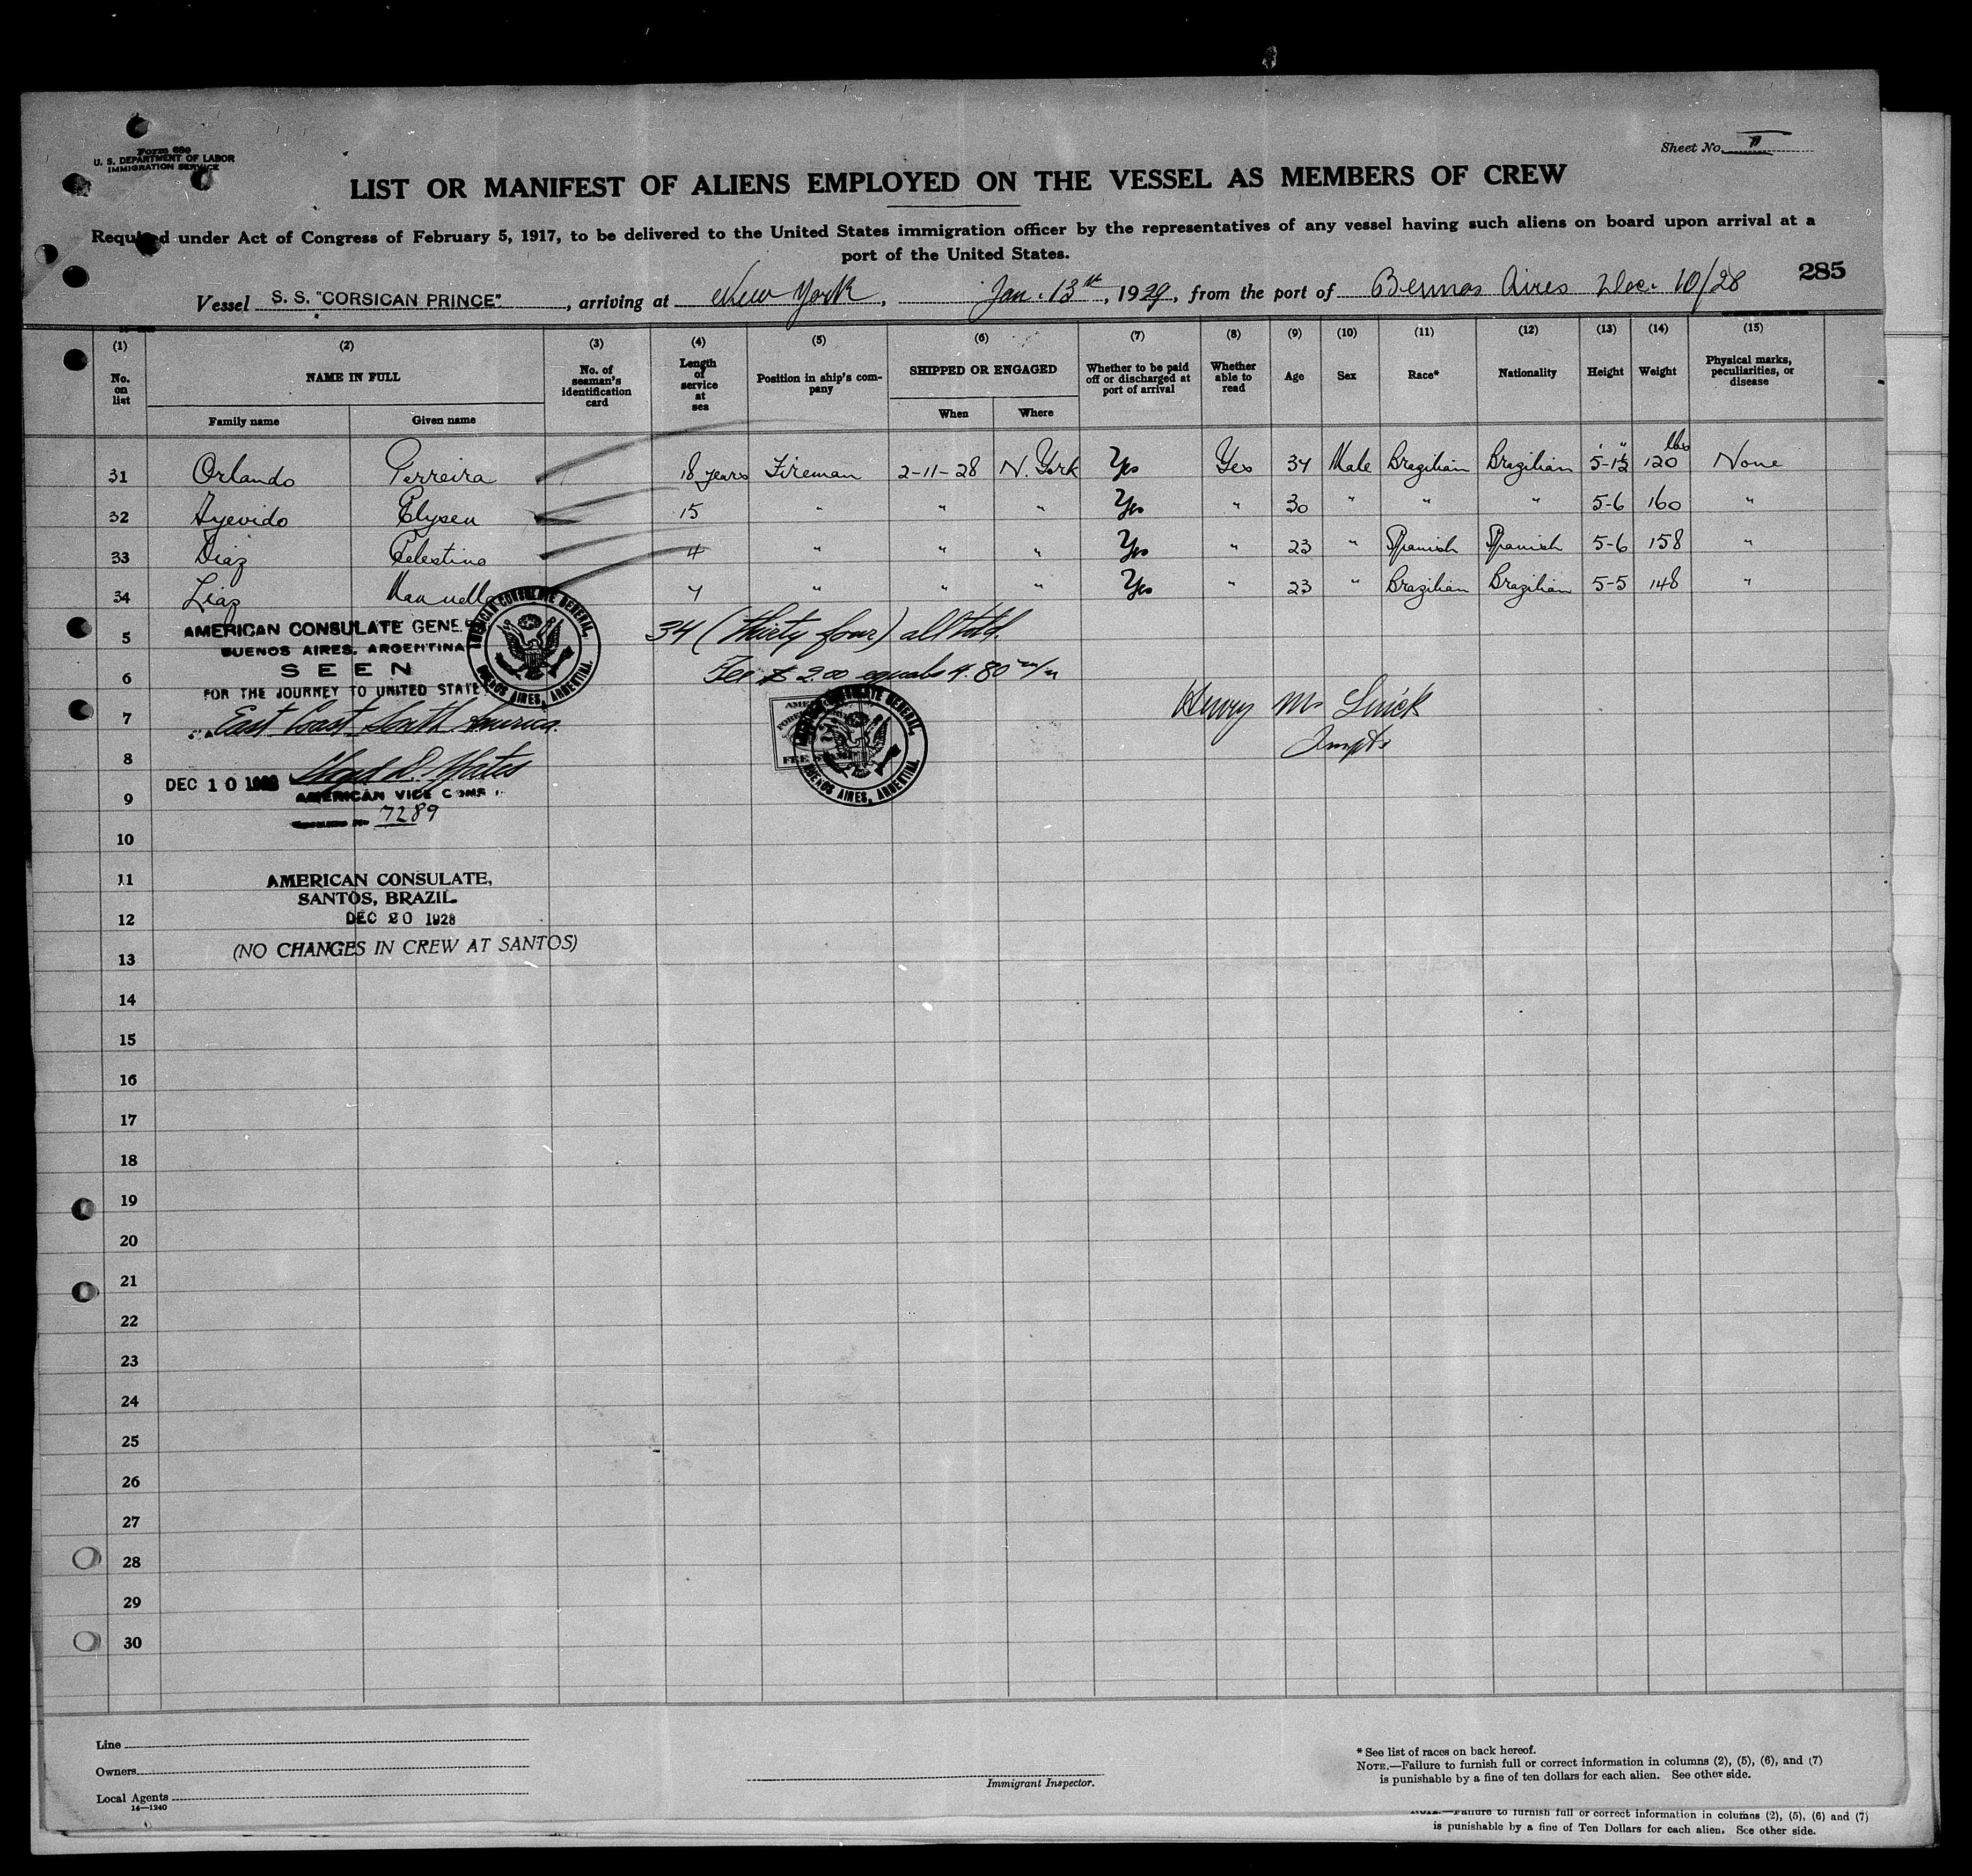 Form 680
U. S. DEPARTMENT OF LABOR
IMMIGRATION SERVICE
Sheet No. II
LIST OR MANIFEST OF ALIENS EMPLOYED ON THE VESSEL AS MEMBERS OF CREW
Required under Act of Congress of February 5, 1917, to be delivered to the United States immigration officer by the representatives of any vessel having such aliens on board upon arrival at a
port of the United States.
285
Vessel S. S. "CORSICAN PRINCE", arriving at New York, Jan. 13th, 1929, from the port of Buenos Aires Dec. 10/28
(1) (2) (3) (4) (5) (6) (7) (8) (9) (10) (11) (12) (13) (14) (15)
No. on list NAME IN FULL No. of seaman's identification card Length of service at sea Position in ship's company SHIPPED OR ENGAGED Whether to be paid off or discharged at port of arrival Whether able to read Age Sex Race* Nationality Height Weight Physical marks, peculiarities, or disease
Family name Given name When Where
31 Orlando Perreira 18 years Fireman 2-11-28 N. York Yes Yes 34 Male Brazilian Brazilian 5'-1½" 120 lbs None
32 Elyseu 15 " " " Yes " 30 " " " 5-6 160 "
33 Diaz Celestino 4 " " " Yes " 23 " Spanish Spanish 5-6 158 "
34 Manuello " " " Yes " 23 " Brazilian Brazilian 5-5 148 "
34 (thirty four) all told.
Fee $ 2.00 equals 4.80 m/n
AMERICAN CONSULATE GENE
BUENOS AIRES, ARGENTINA
SEEN
FOR THE JOURNEY TO UNITED STATE
East Coast South America.
DEC 10 1928
AMERICAN VICE CONS
7289
AMERICAN CONSULATE GENERAL,
BUENOS AIRES, ARGENTINA.
AMERICAN CONSULATE GENERAL,
BUENOS AIRES, ARGENTINA.
Henry
5
6
7
8
9
10
11
AMERICAN CONSULATE,
SANTOS, BRAZIL.
12
DEC 20 1928
(NO CHANGES IN CREW AT SANTOS)
13
14
15
16
17
18
19
20
21
22
23
24
25
26
27
28
29
30
Line
Owners
Local Agents
14—1240
Immigrant Inspector.
* See list of races on back hereof.
NOTE.—Failure to furnish full or correct information in columns (2), (5), (6), and (7)
is punishable by a fine of ten dollars for each alien. See other side.
NOTE.—Failure to furnish full or correct information in columns (2), (5), (6) and (7)
is punishable by a fine of Ten Dollars for each alien. See other side.